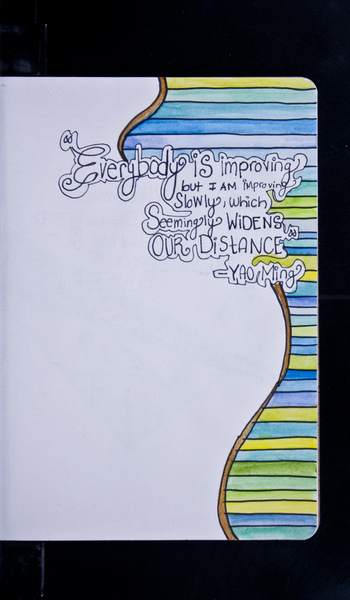 "Everybody is improving,
but I AM improving
Slowly, which
Seemingly WiDENS
OUR DiSTANCE"
-YAO Ming